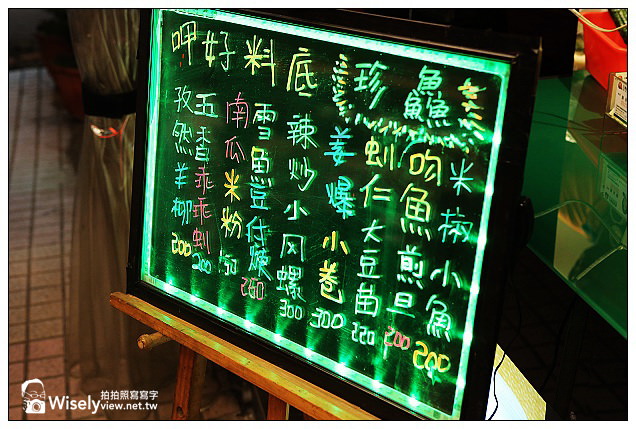 呷好料底
珍
鱻
米椒小魚
200
吻魚煎旦
200
蚵仁大豆苗
220
姜爆小卷
300
辣炒小风螺
300
雪魚豆付煲
260
南瓜米粉
150
五香乖乖蚵
200
孜然羊柳
200
拍拍照寫寫字
Wiselyview.net.tw